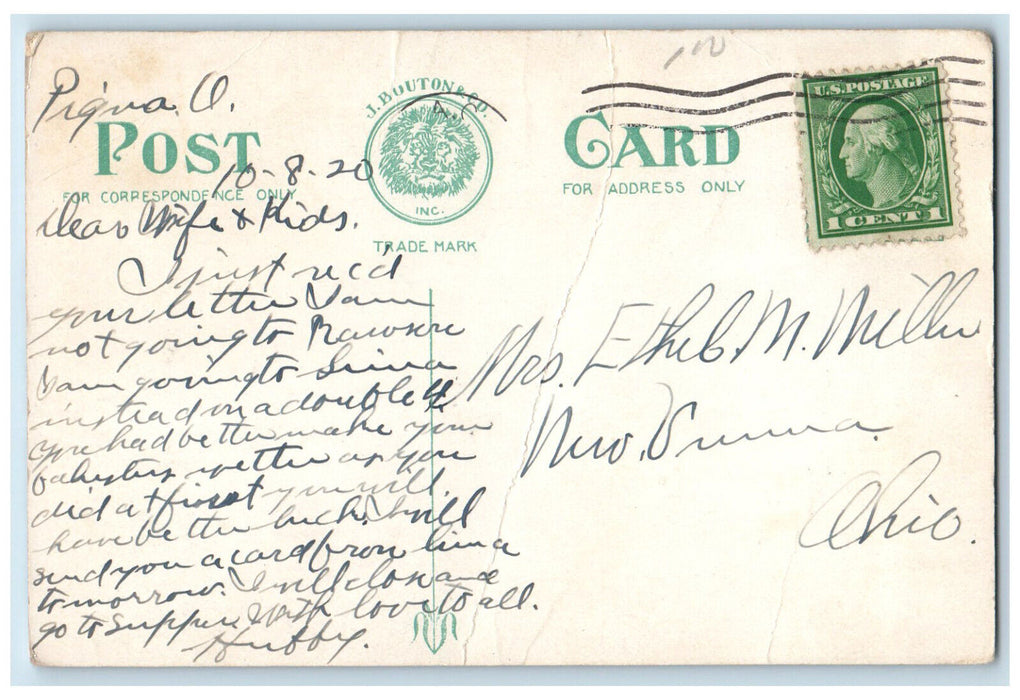 Piqua. O.
J. BOUTON & CO.
INC.
TRADE MARK
POST CARD
FOR CORRESPONDENCE ONLY
FOR ADDRESS ONLY
U.S. POSTAGE
1 CENT 1
10-8-20
Dear Wife & Kids.
I just rec'd
your letter I am
not going to
I am going to Lima
instead on a double
you had better make your
yetter as you
did at first you will
have better luck. I will
send you a card from Lima
tomorrow. I will close and
go to supper with love to all.
Hubby.
Mrs. Ethel M. Miller
New
Ohio.